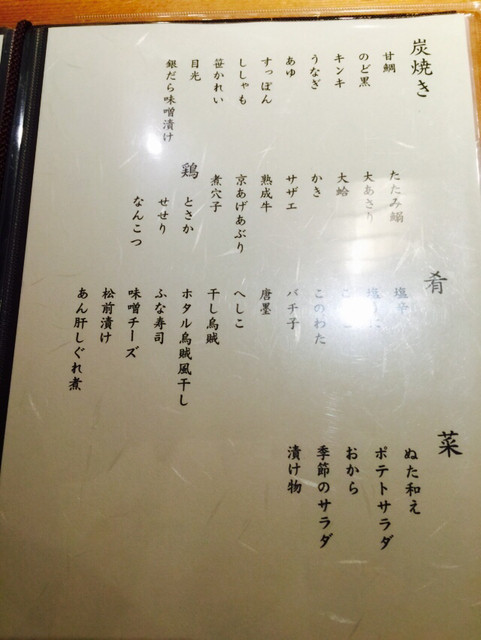 炭焼き
甘鯛
のど黒
キンキ
うなぎ
あゆ
すっぽん
ししゃも
笹かれい
目光
銀だら味噌漬け
たたみ鰯
大あさり
大蛤
かき
サザエ
熟成牛
京あげあぶり
煮穴子
鶏
とさか
せせり
なんこつ
肴
塩辛
このわた
バチ子
唐墨
へしこ
干し烏賊
ホタル烏賊風干し
ふな寿司
味噌チーズ
松前漬け
あん肝しぐれ煮
菜
ぬた和え
ポテトサラダ
おから
季節のサラダ
漬け物